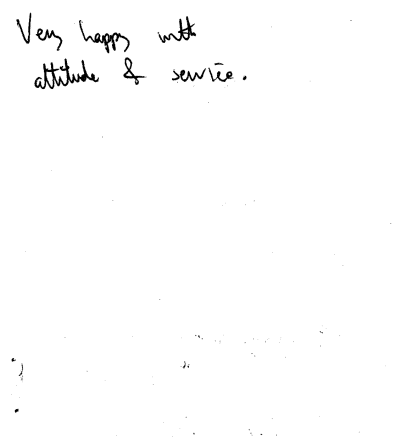 Very happy with
attitude & service.